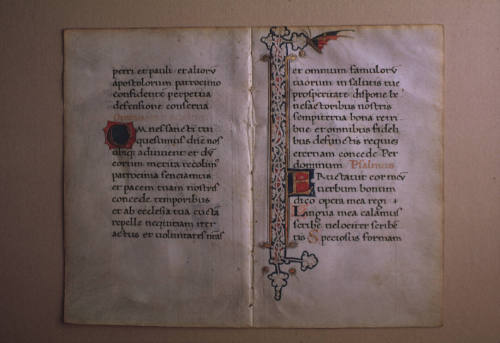 petri et pauli et aliorv
apostolorum patrocinio
confidente perpetua
defensione conserua
Omnes sancti tui
quesumus dñe nos
ubiqꝫ adiuuent et dū
eorum merita recolim̃
patrocinia sentiamus
et pacem tuam nostris
concede temporibus
et ab ecclesia tua cūcta
repelle nequitiam iter
actus et voluntates nr̃as
et omnium famulorv
tuorum in salutis tue
prosperitate dispone be
nefactoribus nostris
sempiterna bona retri
bue et omnibus fideli
bus defunctis requiē
eternam concede Per
dominum Psalmus
Eructauit cor meṽ
uerbum bonum
dico opera mea regi
Lingua mea calamus
scribe uelociter scribē
tis Speciosus formam